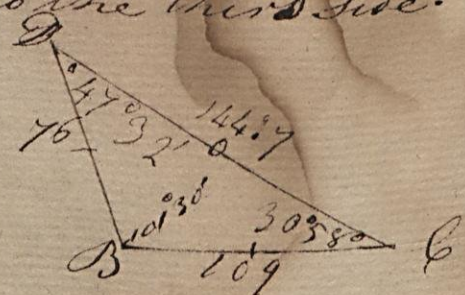 to the third side.
D
47°32'
144:7
76
101°30'
30°58°
B
109
C